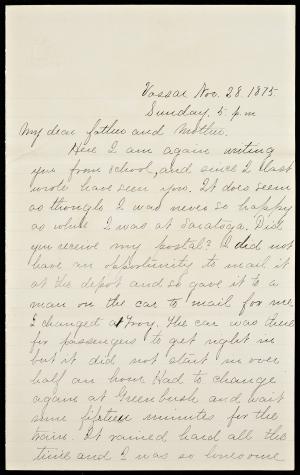 Vassar Nov. 28 1875.
Sunday, 5 p.m
My dear father and Mother.
Here I am again writing
you from school, and since I last
wrote have seen you. It does seem
as though I was never so happy
as while I was at Saratoga. Did
you receive my postal? I did not
have an opportunity to mail it
at the depot and so gave it to a
man on the car to mail for me.
I changed at Troy. The car was there
for passengers to get right in
but it did not start in over
half an hour. Had to change
again at Greenbush and wait
some fifteen minutes for the
train. It rained hard all the
time and I was so lonesome